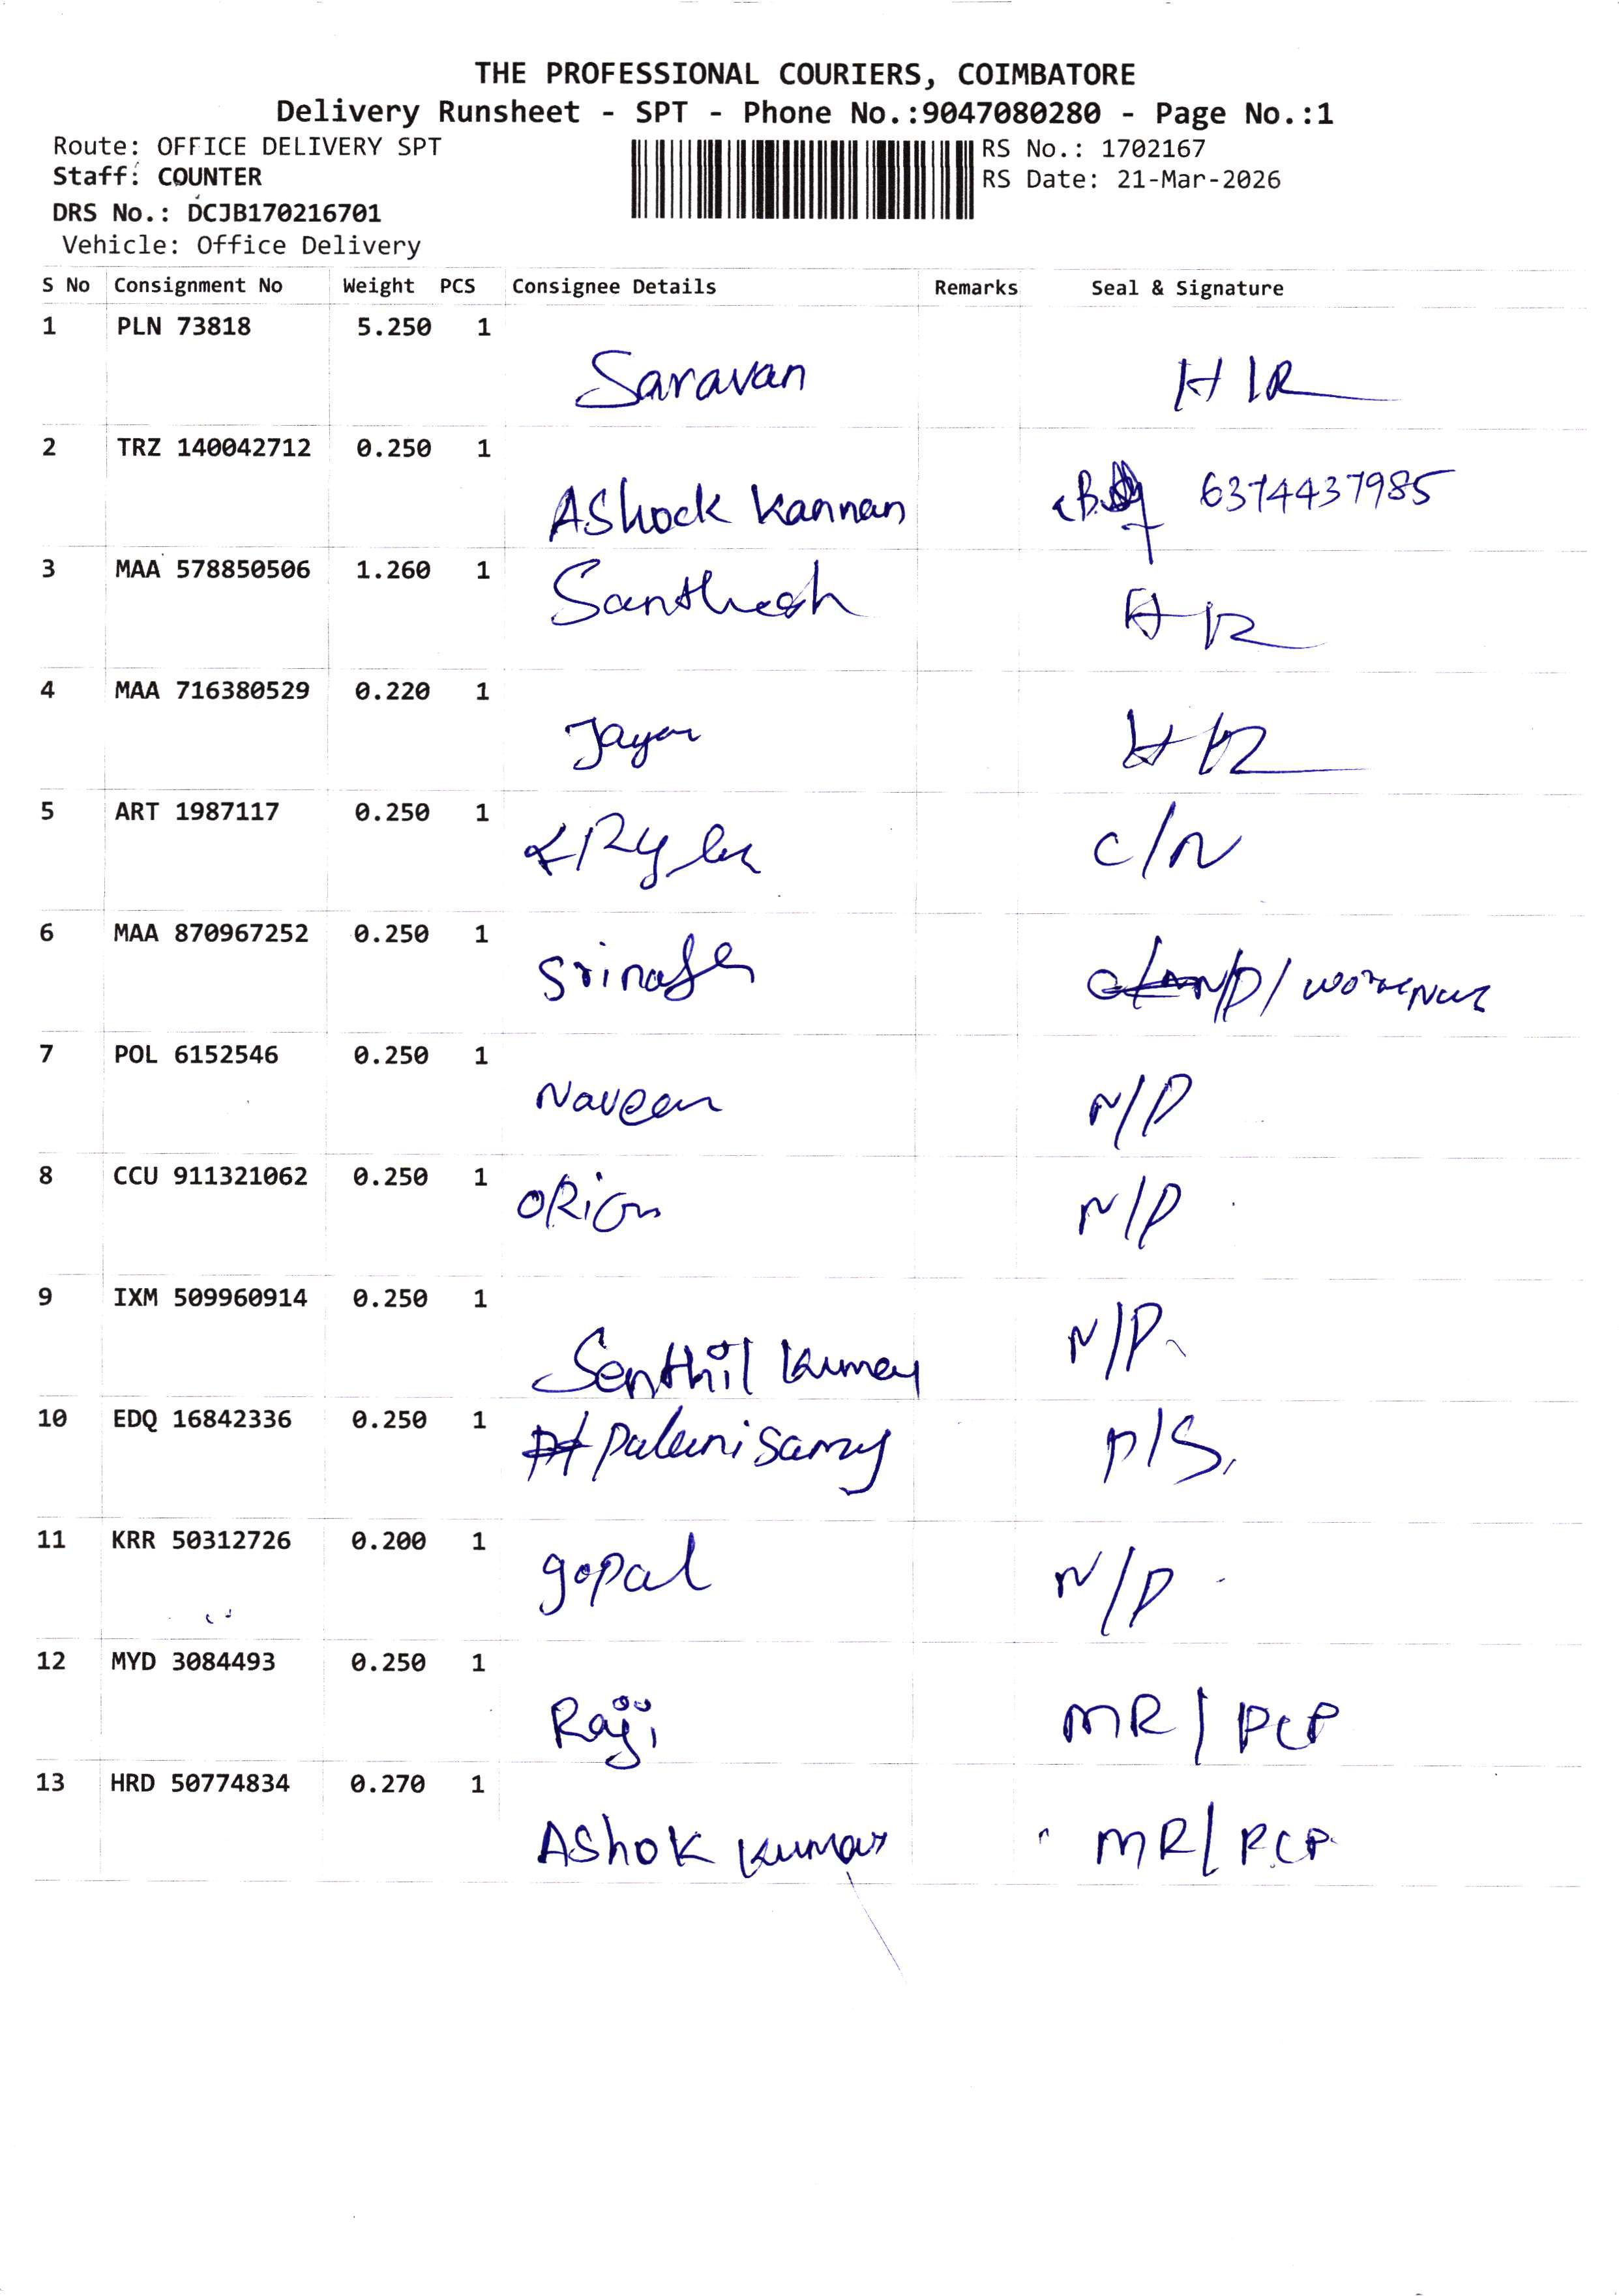 THE PROFESSIONAL COURIERS, COIMBATORE
Delivery Runsheet - SPT - Phone No.:9047080280 - Page No.:1
Route: OFFICE DELIVERY SPT
RS No.: 1702167
Staff: COUNTER
RS Date: 21-Mar-2026
DRS No.: DCJB170216701
Vehicle: Office Delivery
S No Consignment No Weight PCS Consignee Details Remarks Seal & Signature
1 PLN 73818 5.250 1
Saravan
2 TRZ 140042712 0.250 1
AShock Kannan 6374437985
3 MAA 578850506 1.260 1
4 MAA 716380529 0.220 1
5 ART 1987117 0.250 1
C/N
6 MAA 870967252 0.250 1
7 POL 6152546 0.250 1
Naveen N/D
8 CCU 911321062 0.250 1
ORion N/D
9 IXM 509960914 0.250 1
Senthil Kumar N/D
10 EDQ 16842336 0.250 1
Palanisamy P/S
11 KRR 50312726 0.200 1
gopal N/D
12 MYD 3084493 0.250 1
Raji MR/PCP
13 HRD 50774834 0.270 1
AShok Kumar MR/PCP